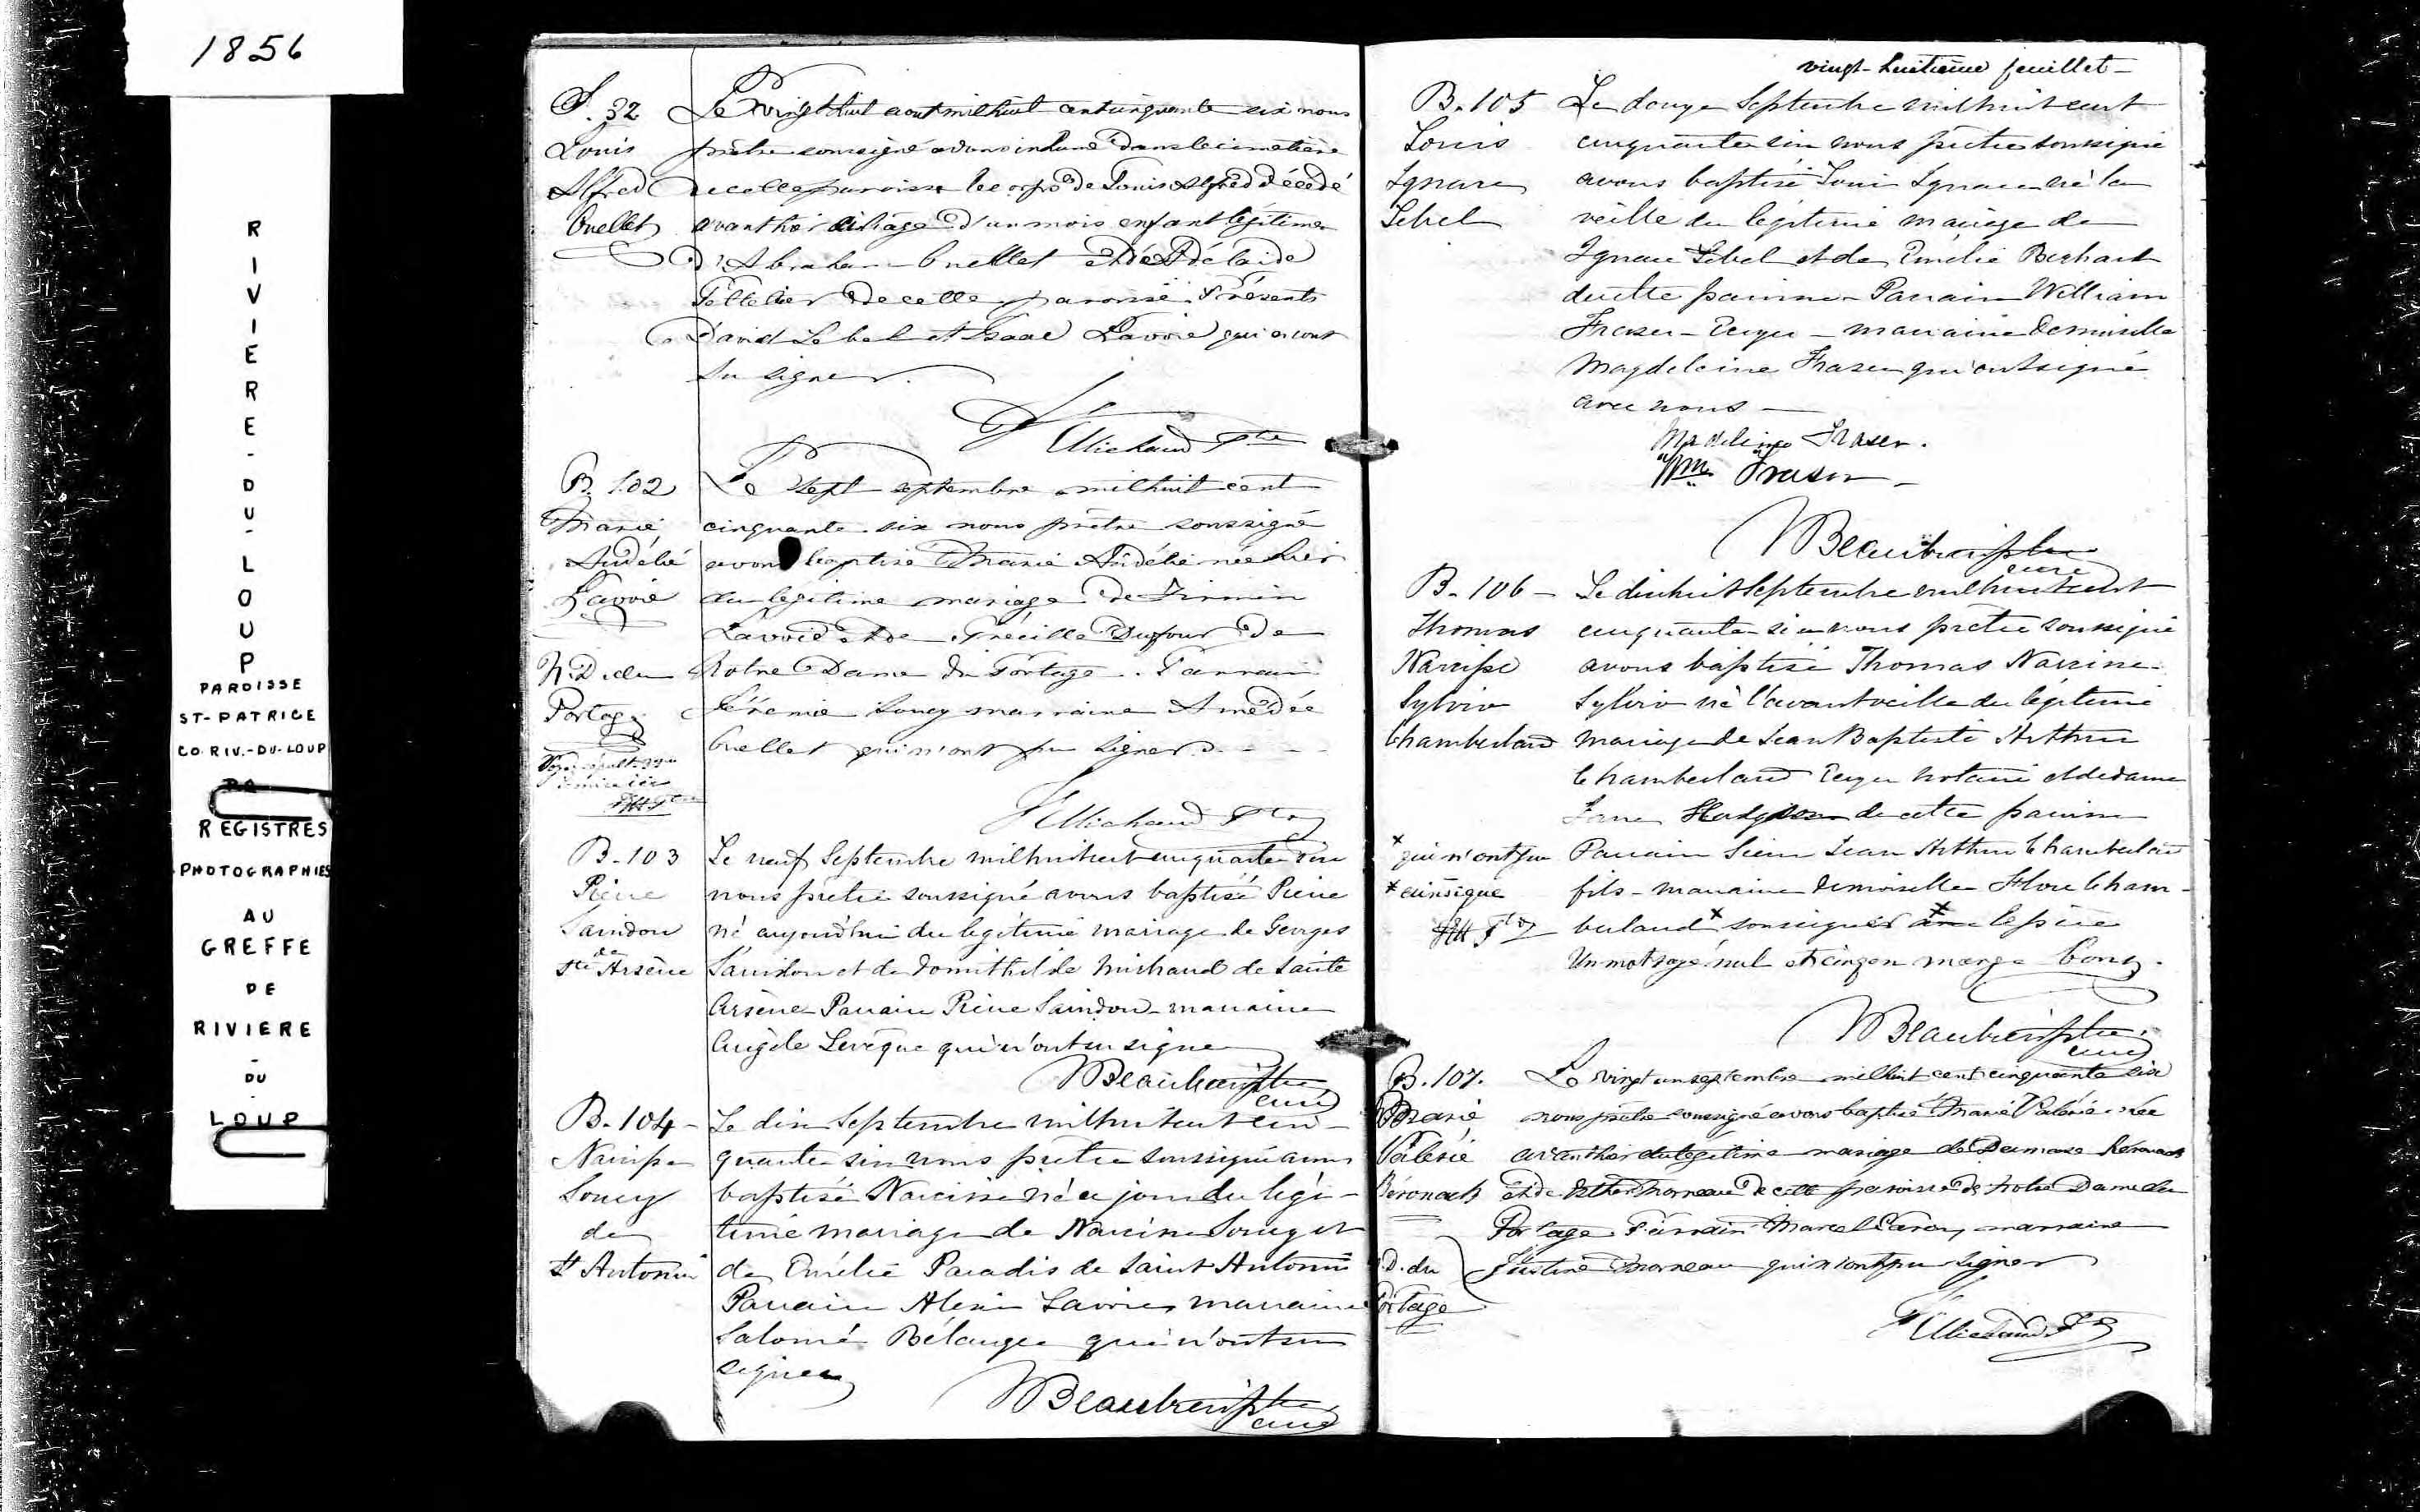 1856
RIVIERE-DU-LOUP
PAROISSE
ST-PATRICE
CO. RIV.-DU-LOUP
REGISTRES
PHOTOGRAPHIES
AU
GREFFE
DE
RIVIERE
-
DU
-
LOUP
S. 32
Louis
Alfred
Ouellet
Le vingt huit aout mil huit cent cinquante six nous
prêtre soussigné avons inhumé dans le cimetière
de cette paroisse le corps de Louis Alfred décédé
avanthier à l'age d'un mois enfant légitime
d'Abraham Ouellet et de Adélaide
Pelletier de cette paroisse. Présents
David Lebel et Isaac Lavoie qui n'ont
su signer.
Michaud Ptre
B. 102
Marie
Lavoie
N. D. du
Portage
Le sept septembre mil huit cent
cinquante six nous prêtre soussigné
avons baptisé Marie née hier
du légitime mariage de Firmin
Lavoie et de Dufour de
Notre Dame du Portage. Parrain
Jérémie Soucy marraine Amédée
Ouellet qui n'ont pu signer.
Michaud Ptre
B. 103
Pierre
Saindon
de
Ste Arsène
Le neuf Septembre mil huit cent cinquante six
nous prêtre soussigné avons baptisé Pierre
né aujourd'hui du légitime mariage de Georges
Saindon et de Domithilde Michaud de Sainte
Arsène Parrain Pierre Saindon - marraine
Angèle Levêque qui n'ont su signer
Beaubien ptre
curé
B. 104 -
Narcisse
Soucy
de
St Antonin
Le dix Septembre mil huit cent cin-
quante six nous prêtre soussigné avons
baptisé Narcisse né ce jour du légi-
time mariage de Narcisse Soucy et
de Emélie Paradis de Saint Antonin
Parrain Alexis Lavoie marraine
Salomé Bélanger qui n'ont su
signer
Beaubien ptre
curé
vingt-huitième feuillet -
B. 105
Louis
Ignace
Lebel
Le douze Septembre mil huit cent
cinquante six nous prêtre soussigné
avons baptisé Louis Ignace né la
veille du légitime mariage de
Ignace Lebel et de Emélie
de cette paroisse - Parrain William
Fraser - Ecuyer - marraine Demoiselle
Magdeleine Fraser qui ont signé
avec nous -
Madeline Fraser.
Wm Fraser -
Beaubien ptre
curé
B. 106 -
Thomas
Narcisse
Sylvio
Chamberland
Le dixhuit Septembre mil huit cent
cinquante six nous prêtre soussigné
avons baptisé Thomas Narcisse
Sylvio né l'avantveille du légitime
mariage de Jean Baptiste Arthur
Chamberland Ecuyer notaire et de dame
Jane de cette paroisse
Parrain Sieur Jean Arthur Chamberland
fils - marraine demoiselle Flore Cham-
berland x soussignés x le père
Un mot rayé nul et cinq en marge bons.
x qui n'ont pu
x ainsi que
Beaubien ptre
curé
B. 107.
Marie
Valérie
D. du
Portage
Le vingt un septembre mil huit cent cinquante six
nous prêtre soussigné avons baptisé Marie Valérie née
avanthier du légitime mariage de Damase
et de Esther Morneau de cette paroisse de Notre Dame du
Portage Parrain Marcel Caron, marraine
Justine Morneau qui n'ont pu signer
Michaud Ptre